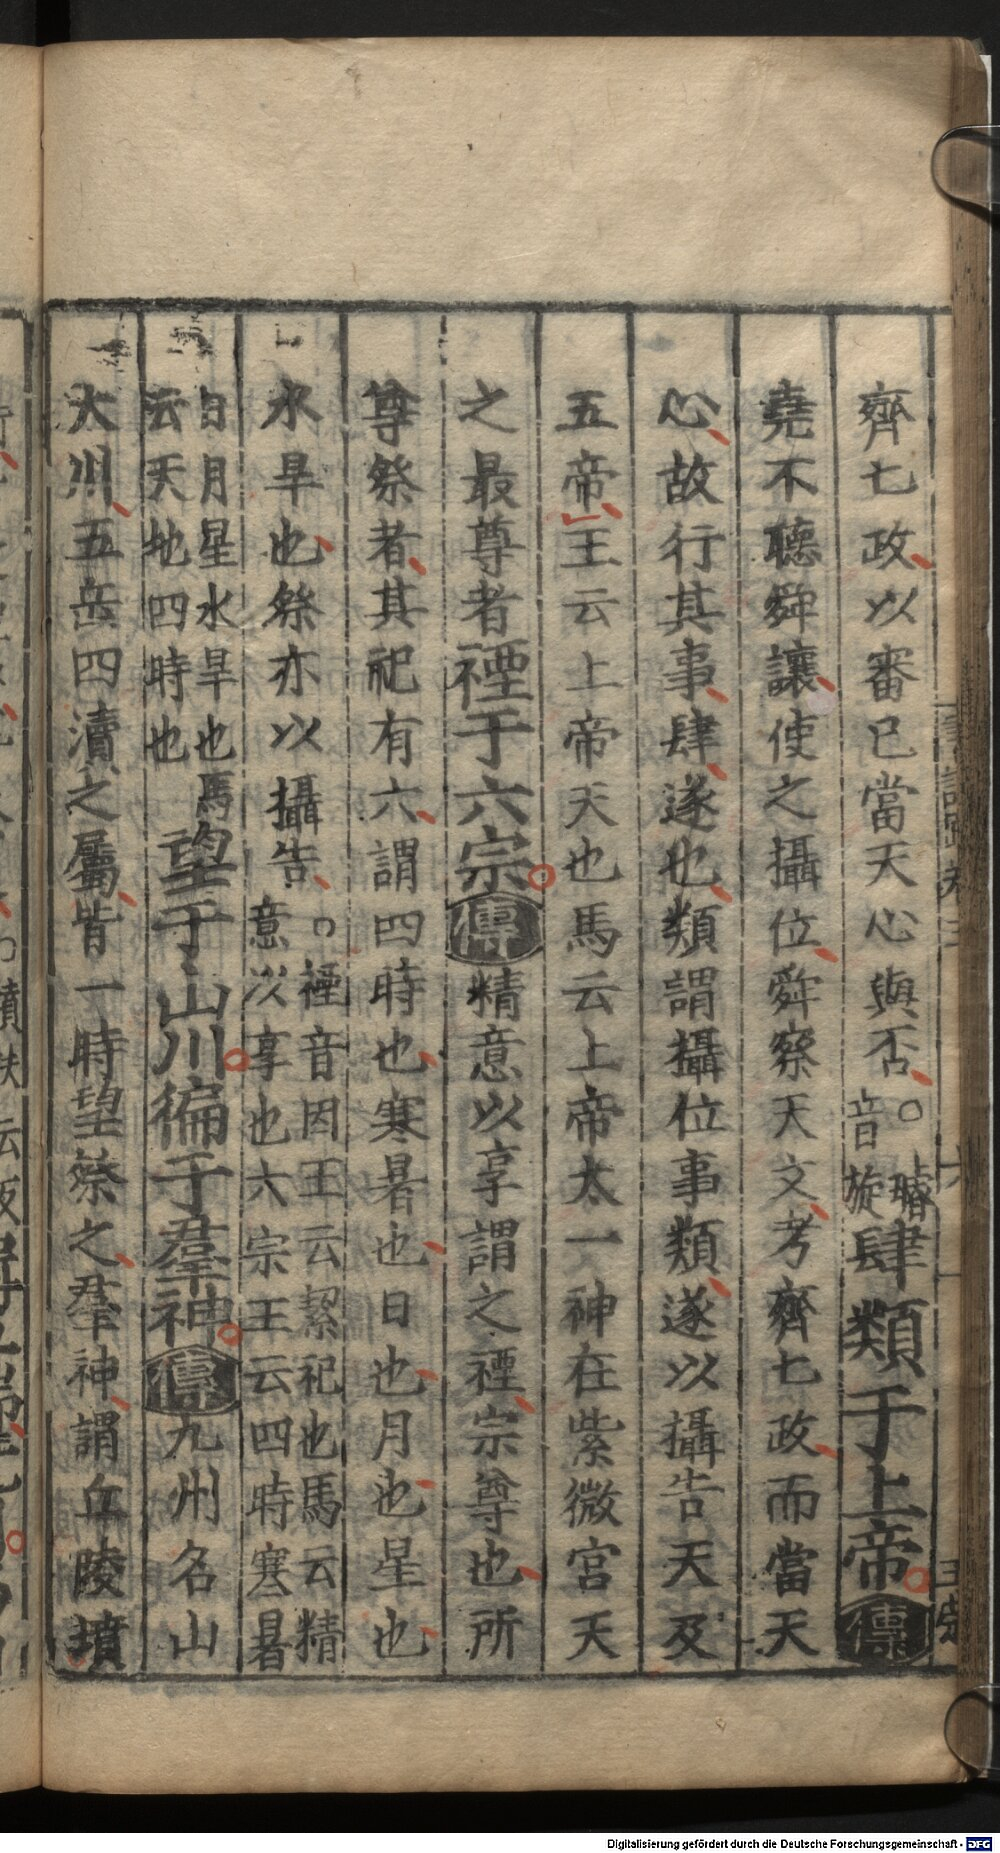 齊七政以審已當天心與否○璿音旋肆類于上帝傳
堯不聽舜讓使之攝位舜察天文考齊七政而當天
心故行其事肆遂也類謂攝位事類遂以攝告天及
五帝王云上帝天也馬云上帝太一神在紫微宮天
之最尊者禋于六宗傳精意以享謂之禋宗尊也所
尊祭者其祀有六謂四時也寒暑也日也月也星也
水旱也祭亦以攝告○禋音因王云絜祀也馬云精意以享也六宗王云四時寒暑
日月星水旱也馬云天地四時也望于山川徧于羣神傳九州名山
大川五岳四瀆之屬皆一時望祭之羣神謂丘陵墳
Digitalisierung gefördert durch die Deutsche Forschungsgemeinschaft - DFG